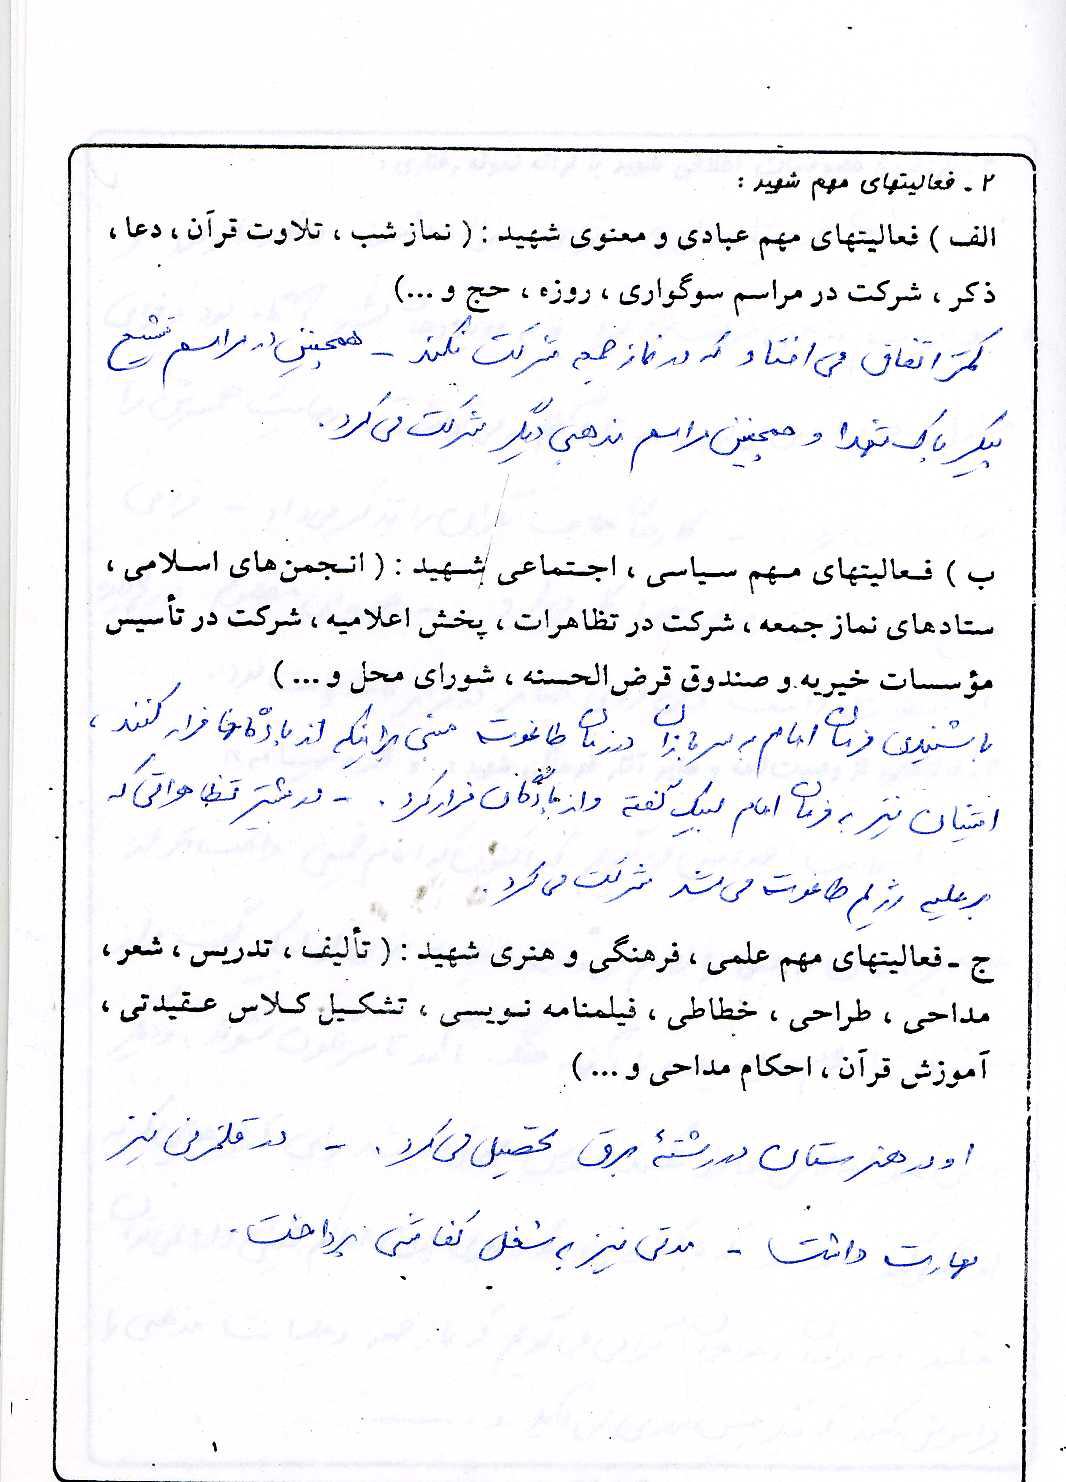 ۲ ـ فعالیتهای مهم شهید :
الف ) فعالیتهای مهم عبادی و معنوی شهید : ( نماز شب ، تلاوت قرآن ، دعا ،
ذکر ، شرکت در مراسم سوگواری ، روزه ، حج و ...)
کمتر اتفاق می افتاد که در نماز جمعه شرکت نکند - همچنین در مراسم تشیع
پیکر پاک شهدا و همچنین مراسم مذهبی دیگر شرکت می کرد .
ب ) فعالیتهای مهم سیاسی ، اجتماعی شهید : ( انجمن‌های اسلامی ،
ستادهای نماز جمعه ، شرکت در تظاهرات ، پخش اعلامیه ، شرکت در تأسیس
مؤسسات خیریه و صندوق قرض‌الحسنه ، شورای محل و ... )
با شنیدن فرمان امام به سربازان در زمان طاغوت مبنی بر اینکه از پادگانها فرار کنند ،
ایشان نیز به فرمان امام لبیک گفته و از پادگان فرار کرد . - در بیشتر تظاهراتی که
بر علیه رژیم طاغوت می شد شرکت می کرد .
ج ـ فعالیتهای مهم علمی ، فرهنگی و هنری شهید : ( تألیف ، تدریس ، شعر ،
مداحی ، طراحی ، خطاطی ، فیلمنامه نویسی ، تشکیل کلاس عقیدتی ،
آموزش قرآن ، احکام مداحی و ... )
او در هنرستان در رشتهٔ برق تحصیل می کرد . - در قلمزنی نیز
مهارت داشت - مدتی نیز به شغل کفاشی پرداخت .
۱